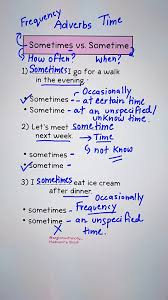 Frequency
Adverbs Time
Sometimes vs. Sometime
How often? When?
1) Sometimes I go for a walk
in the evening.
Occasionally
✓Sometimes - at certain time
Sometime - at an unspecified/
unknow time.
2) Let's meet Sometime
next week. → Time
↳ not know
• sometimes -
✓• Sometime -
3) I Sometimes eat ice cream
after dinner.
Occasionally
✓• sometimes - Frequency
• sometime - an unspecified
✗ time.